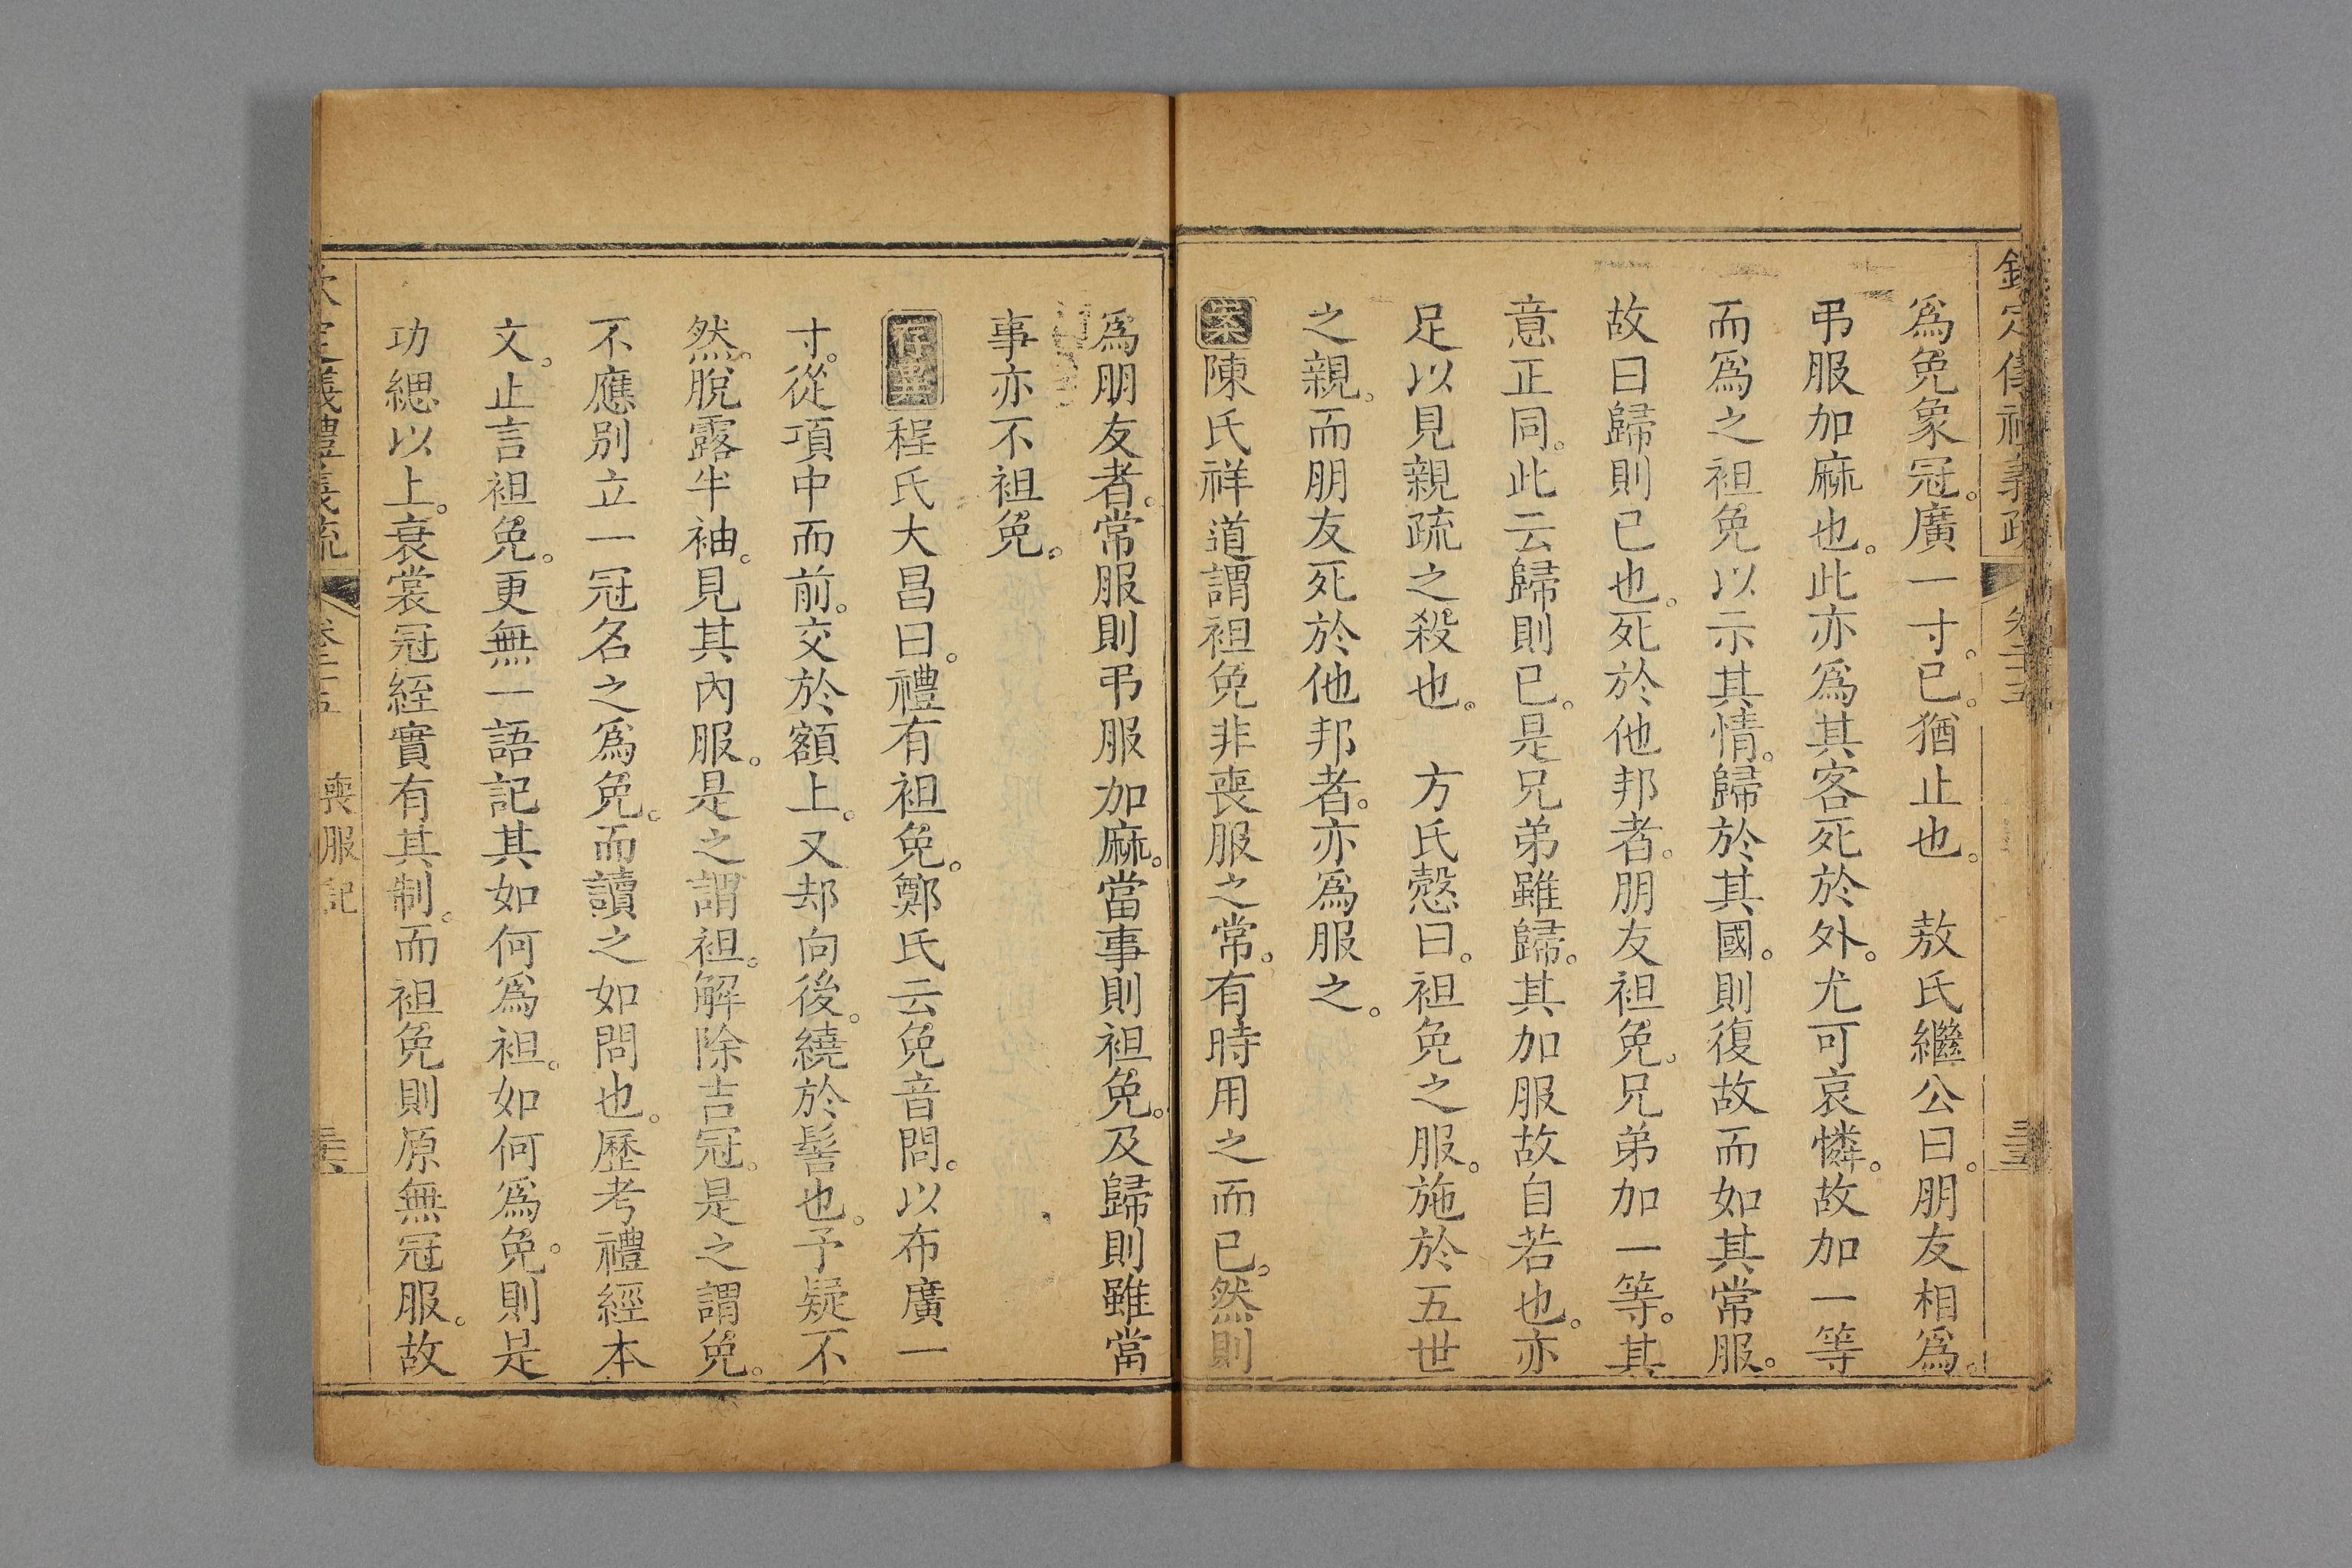 爲免象冠。廣一寸。已。猶止也。　敖氏繼公曰。朋友相爲。
弔服加麻也。此亦爲其客死於外。尤可哀憐。故加一等
而爲之袒免以示其情。歸於其國。則復故而如其常服。
故曰歸則已也。死於他邦者。朋友袒免。兄弟加一等。其
意正同。此云歸則已。是兄弟雖歸。其加服故自若也。亦
足以見親疏之殺也。　方氏慤曰。袒免之服。施於五世
之親。而朋友死於他邦者。亦爲服之。
案陳氏祥道謂袒免非喪服之常。有時用之而已。然則
爲朋友者。常服則弔服加麻。當事則袒免。及歸則雖當
事亦不袒免。
存異程氏大昌曰。禮有袒免。鄭氏云免音問。以布廣一
寸。從項中而前。交於額上。又却向後。繞於髻也。予疑不
然。脫露半袖。見其內服。是之謂袒。解除吉冠。是之謂免。
不應別立一冠名之爲免。而讀之如問也。歷考禮經本
文。止言袒免。更無一語記其如何爲袒。如何爲免。則是
功緦以上。衰裳冠絰實有其制。而袒免則原無冠服。故
定儀禮義疏　卷二十五　喪服記